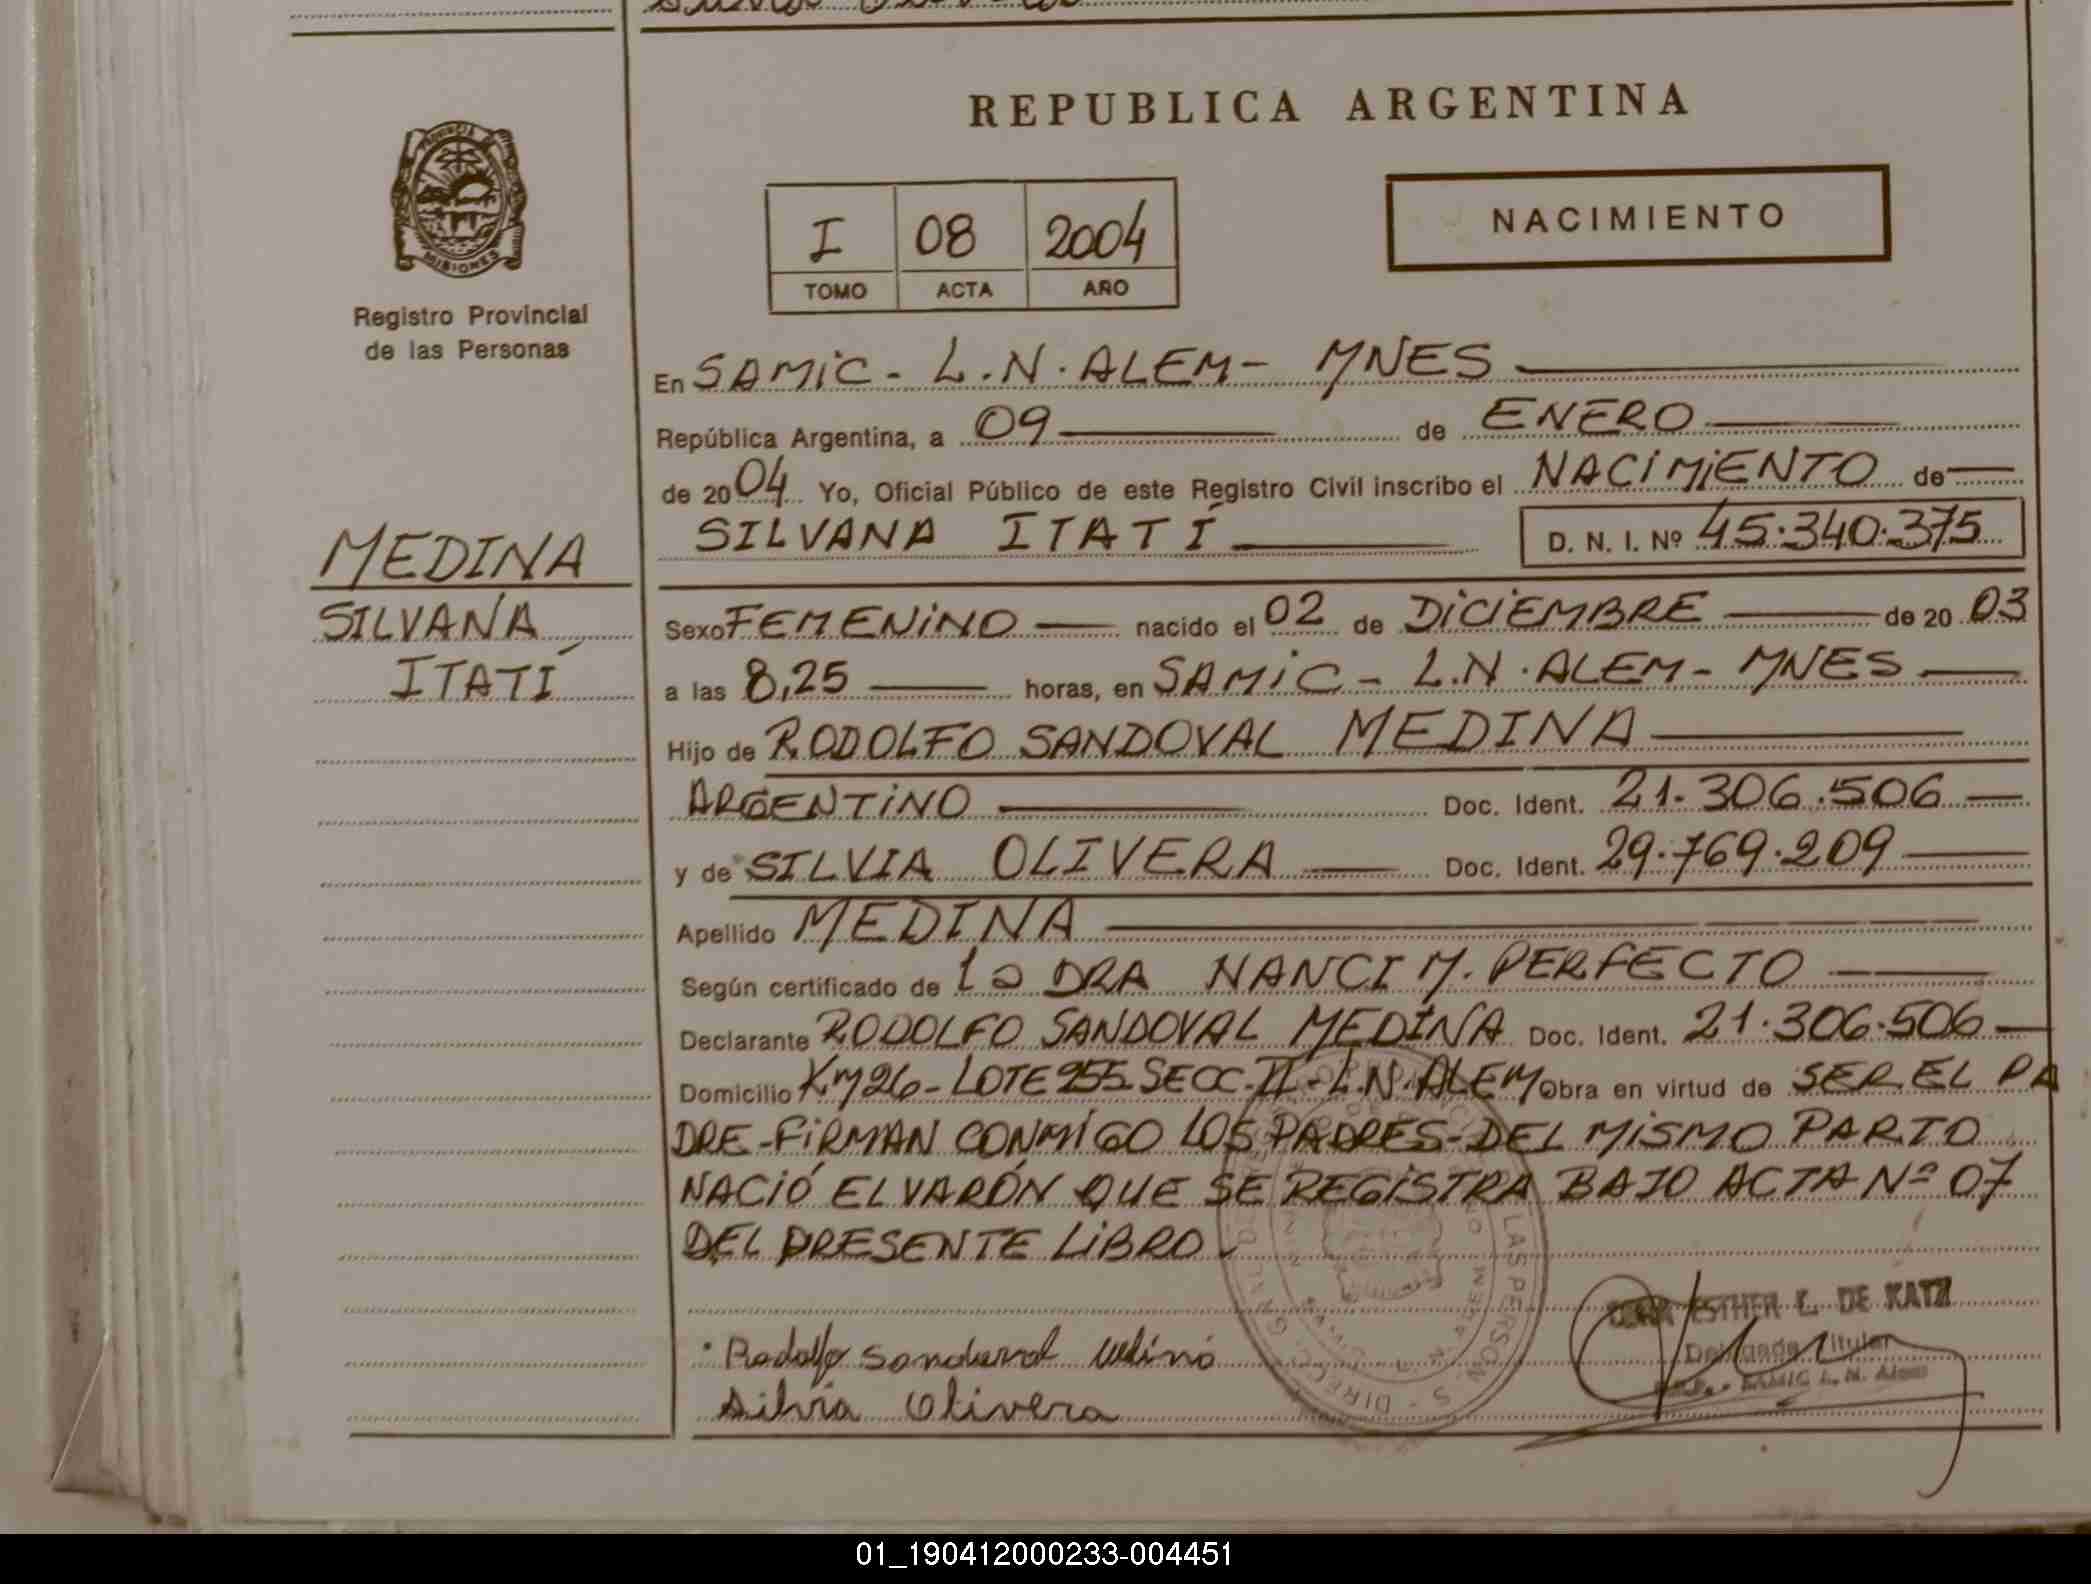 REPUBLICA ARGENTINA
PROVINCIA DE
MISIONES
Registro Provincial
de las Personas
I 08 2004
TOMO ACTA AÑO
NACIMIENTO
En SAMIC - L.N. ALEM - MNES
República Argentina, a 09 de ENERO
de 2004 Yo, Oficial Público de este Registro Civil inscribo el NACIMIENTO de
SILVANA ITATÍ D. N. I. Nº 45.340.375
MEDINA
SILVANA
ITATÍ
Sexo FEMENINO nacido el 02 de DICIEMBRE de 20 03
a las 8,25 horas, en SAMIC - L.N. ALEM - MNES
Hijo de RODOLFO SANDOVAL MEDINA
ARGENTINO Doc. Ident. 21.306.506
y de SILVIA OLIVERA Doc. Ident. 29.769.209
Apellido MEDINA
Según certificado de la DRA NANCI M. PERFECTO
Declarante RODOLFO SANDOVAL MEDINA Doc. Ident. 21.306.506
Domicilio Km 26 - LOTE 255 SECC. II - L.N. ALEM Obra en virtud de SER EL PA
DRE - FIRMAN CONMIGO LOS PADRES - DEL MISMO PARTO
NACIÓ EL VARÓN QUE SE REGISTRA BAJO ACTA Nº 07
DEL PRESENTE LIBRO.
ESTHER L. DE KATZ
Delegada Titular
SAMIC L. N. Alem
Rodolfo Sandoval Medina
Silvia Olivera
01_190412000233-004451